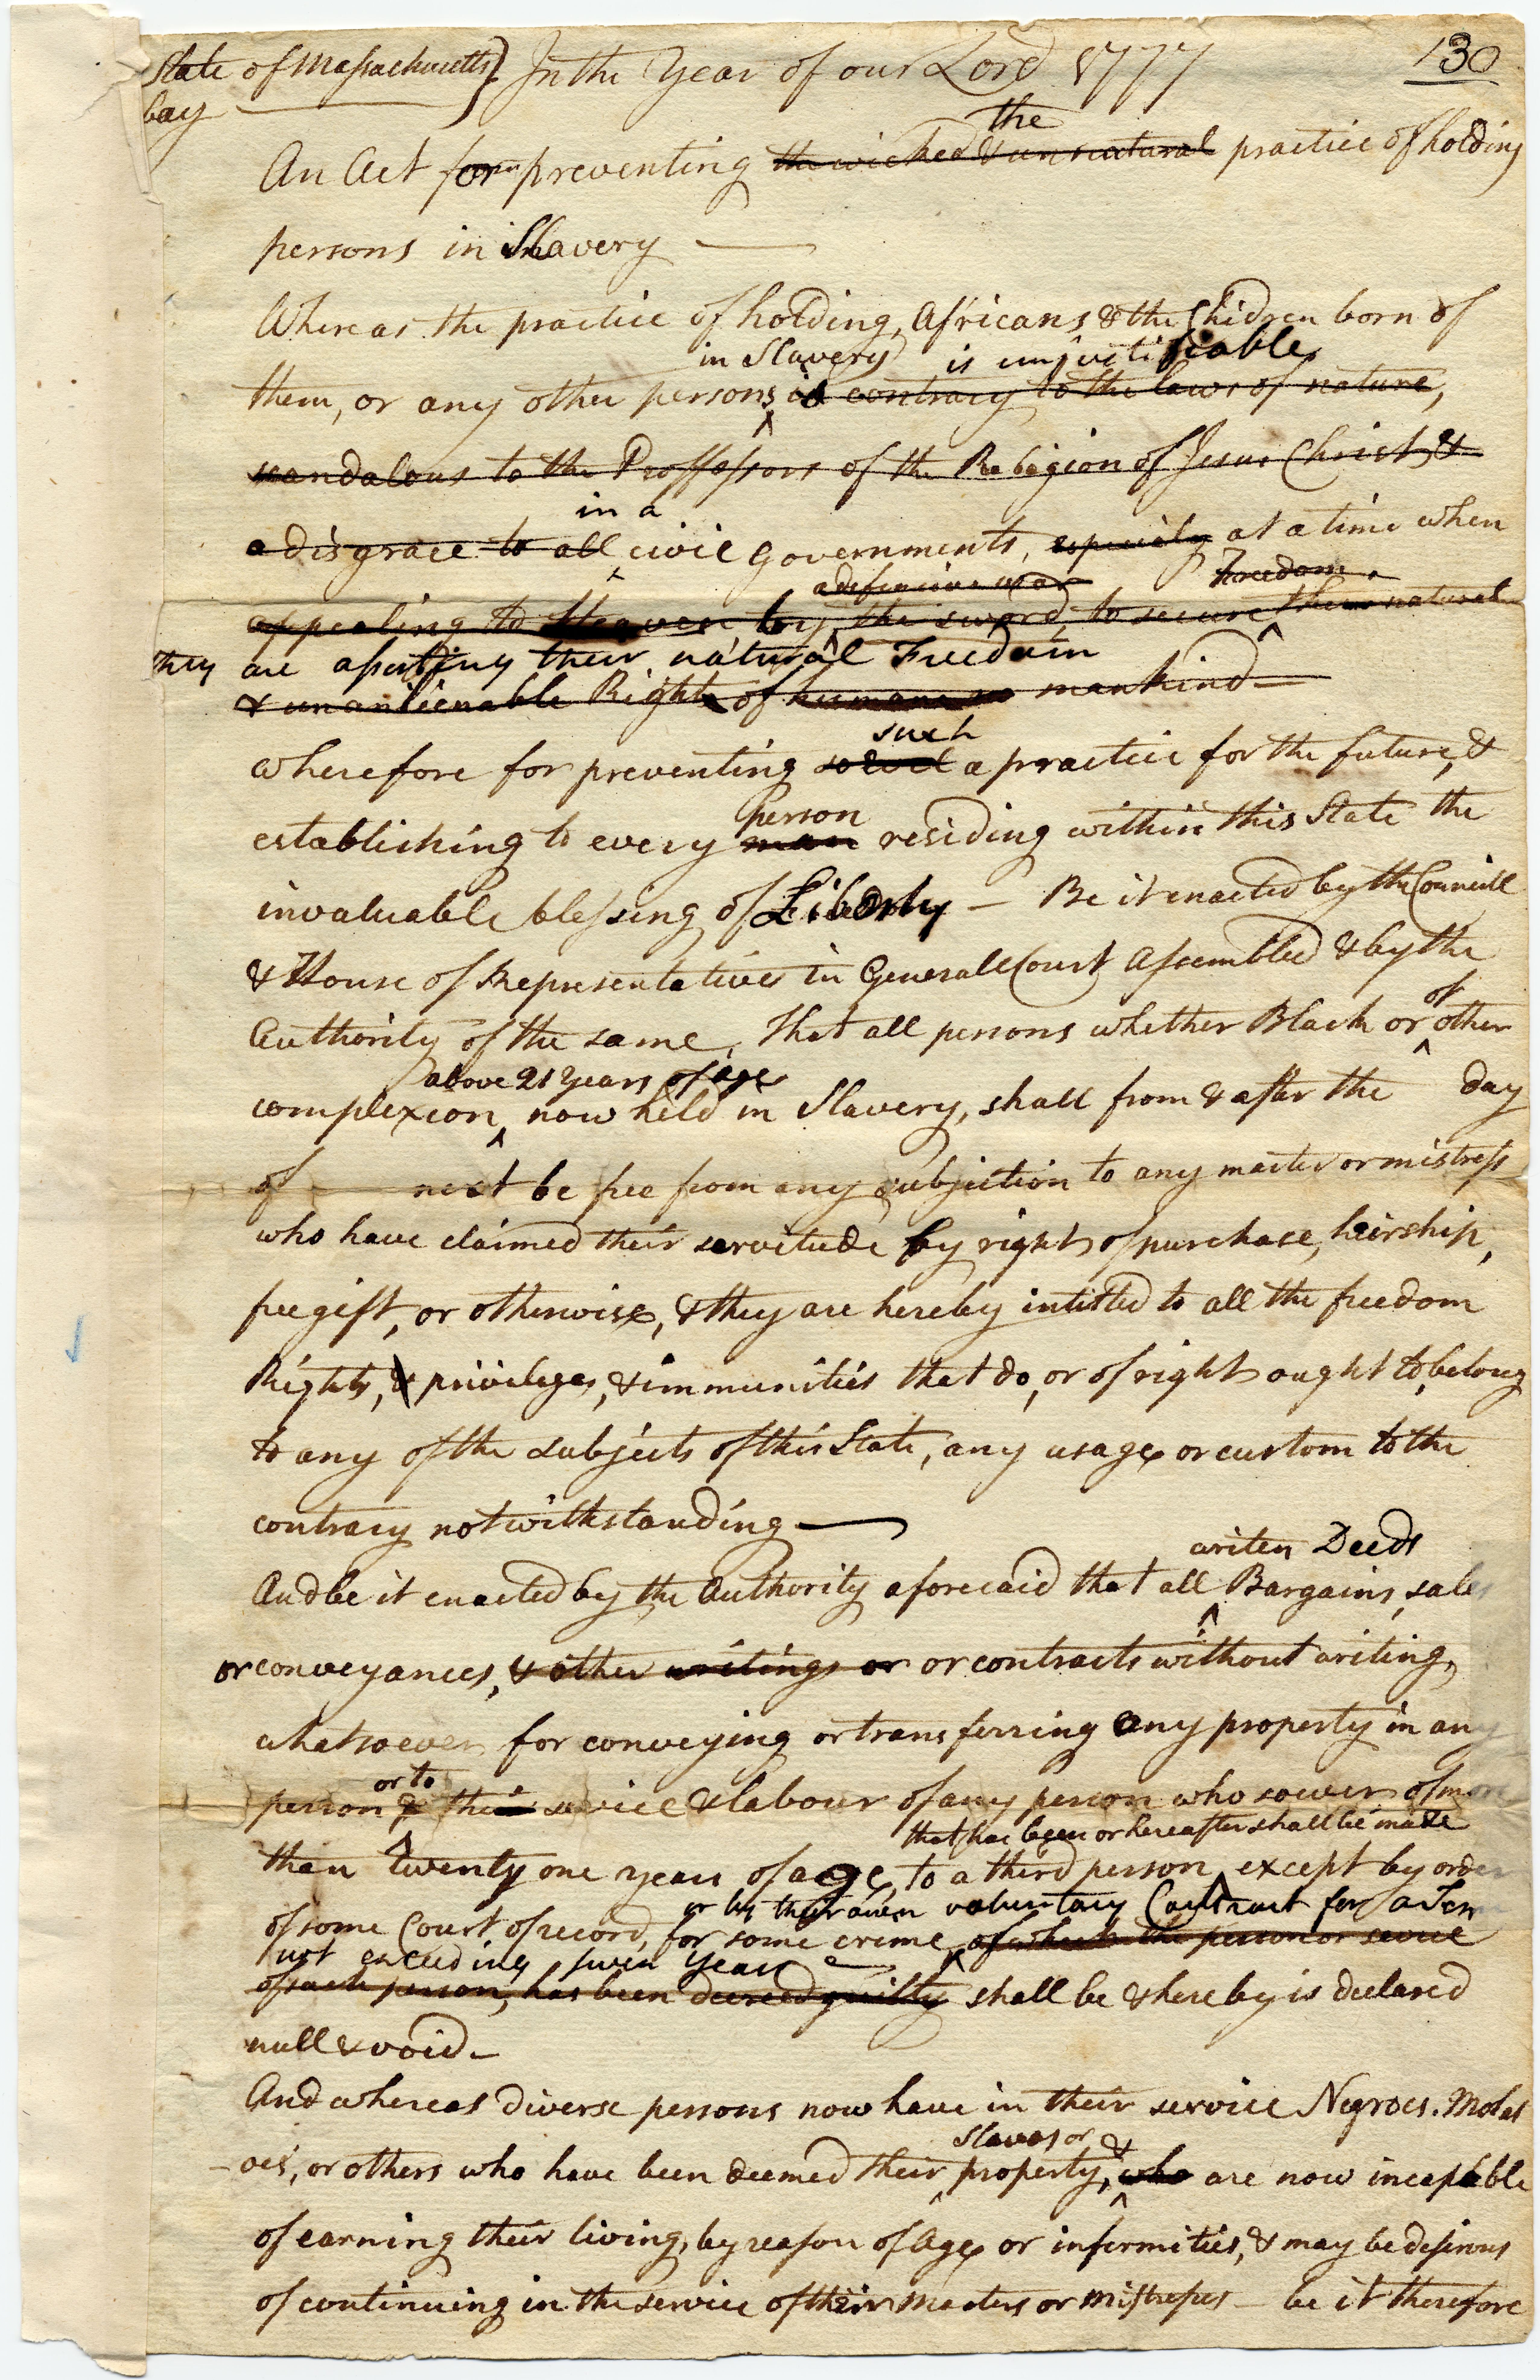 State of Massachusetts } In the Year of our Lord 1777 130
bay
the
An Act for preventing the wicked & unnatural practice of holding
persons in Slavery
Whereas the practice of holding, Africans & the Chidren born of
in Slavery is unjustifiable
them, or any other persons, is contrary to the laws of nature,
scandalous to the Proffessors of the Religion of Jesus Christ, &
in a
a disgrace to all civil Governments, especialy at a time when
a defensive war Freedom
appealing to Heaven by the sword, to secure the natural
they are asserting their natural Freedom
& unanlienable Rights of mankind
such
wherefore for preventing so evil a practice for the future, &
person
establishing to every man residing within this State the
invaluable blessing of Liberty — Be it enacted by the Councill
& House of Representatives in Generall Court Assembled & by the
of
Authority of the same, That all persons whether Black or other
above 21 Years of age
complexion, now held in Slavery, shall from & after the day
of next be free from any subjection to any master or mistress
who have claimed their servitude by right of purchase, heirship,
free gift, or otherwise, & they are hereby intitled to all the freedom
Rights, & privileges, & immunities that do, or of right ought to, belong
to any of the subjects of this State, any usage or custom to the
contrary notwithstanding
writen Deeds
And be it enacted by the Authority aforesaid that all Bargains, sales
or conveyances, & other writings or or contracts without writing,
whatsoever for conveying or transferring any property in any
or to
person & their service & labour of any person whosoever of more
that has been or hereafter shall be made
than twenty one years of age, to a third person, except by order
or by their own voluntary Contract for a Term
of some Court of record, for some crime, of which the person or service
not exceeding seven Years
of such person, has been decreed guilty shall be & hereby is declared
null & void
And whereas diverse persons now have in their service Negroes. Molat
Slaves or &
-oes, or others who have been deemed their property, who are now incapable
of earning their living, by reason of Age or infermities, & may be desirous
of continuing in the service of their masters or Mistresses — be it therefore